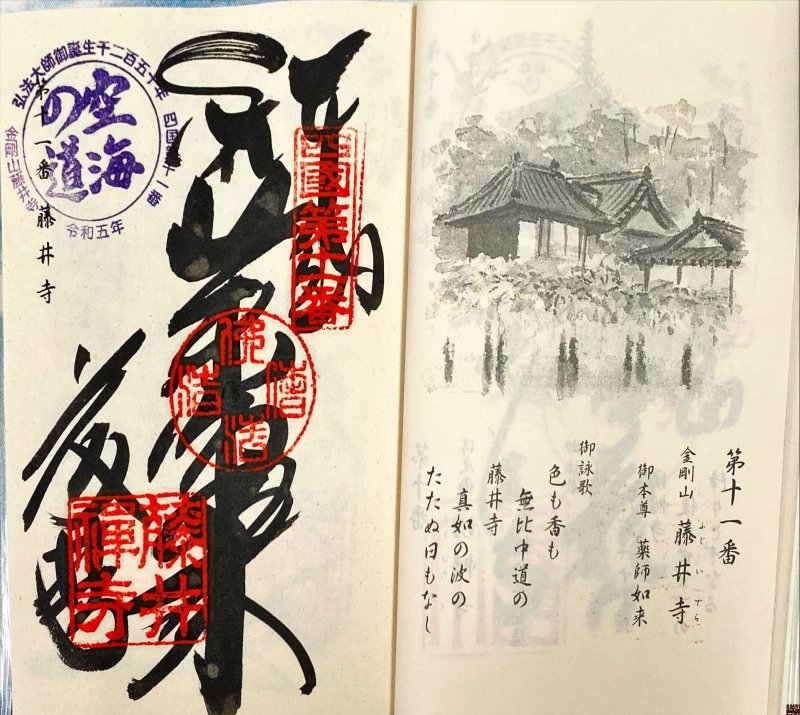 第十一番
金剛山 藤井寺
ふじいでら
御本尊 薬師如来
御詠歌
色も香も
無比中道の
藤井寺
真如の波の
たたぬ日もなし
四國第十一番
奉納
佛法僧寶
藤井寺
藤井禪寺
弘法大師御誕生千二百五十年 四国第十一番
空海
の道
金剛山藤井寺
令和五年
第十一番 藤井寺